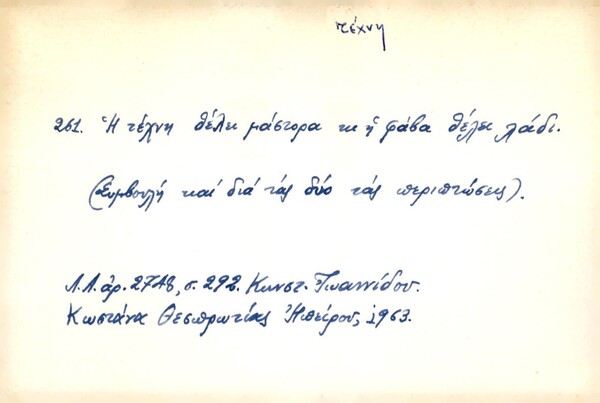 τέχνη
261. Ἡ τέχνη θέλει μάστορα κι ἡ φάβα θέλει λάδι.
(Συμβουλή καί διά τάς δύο τάς περιπτώσεις).
Λ.Λ. ἀρ. 2748, σ. 292. Κωνστ. Ἰωαννίδου.
Κωστάνα Θεσπρωτίας Ἠπείρου, 1963.